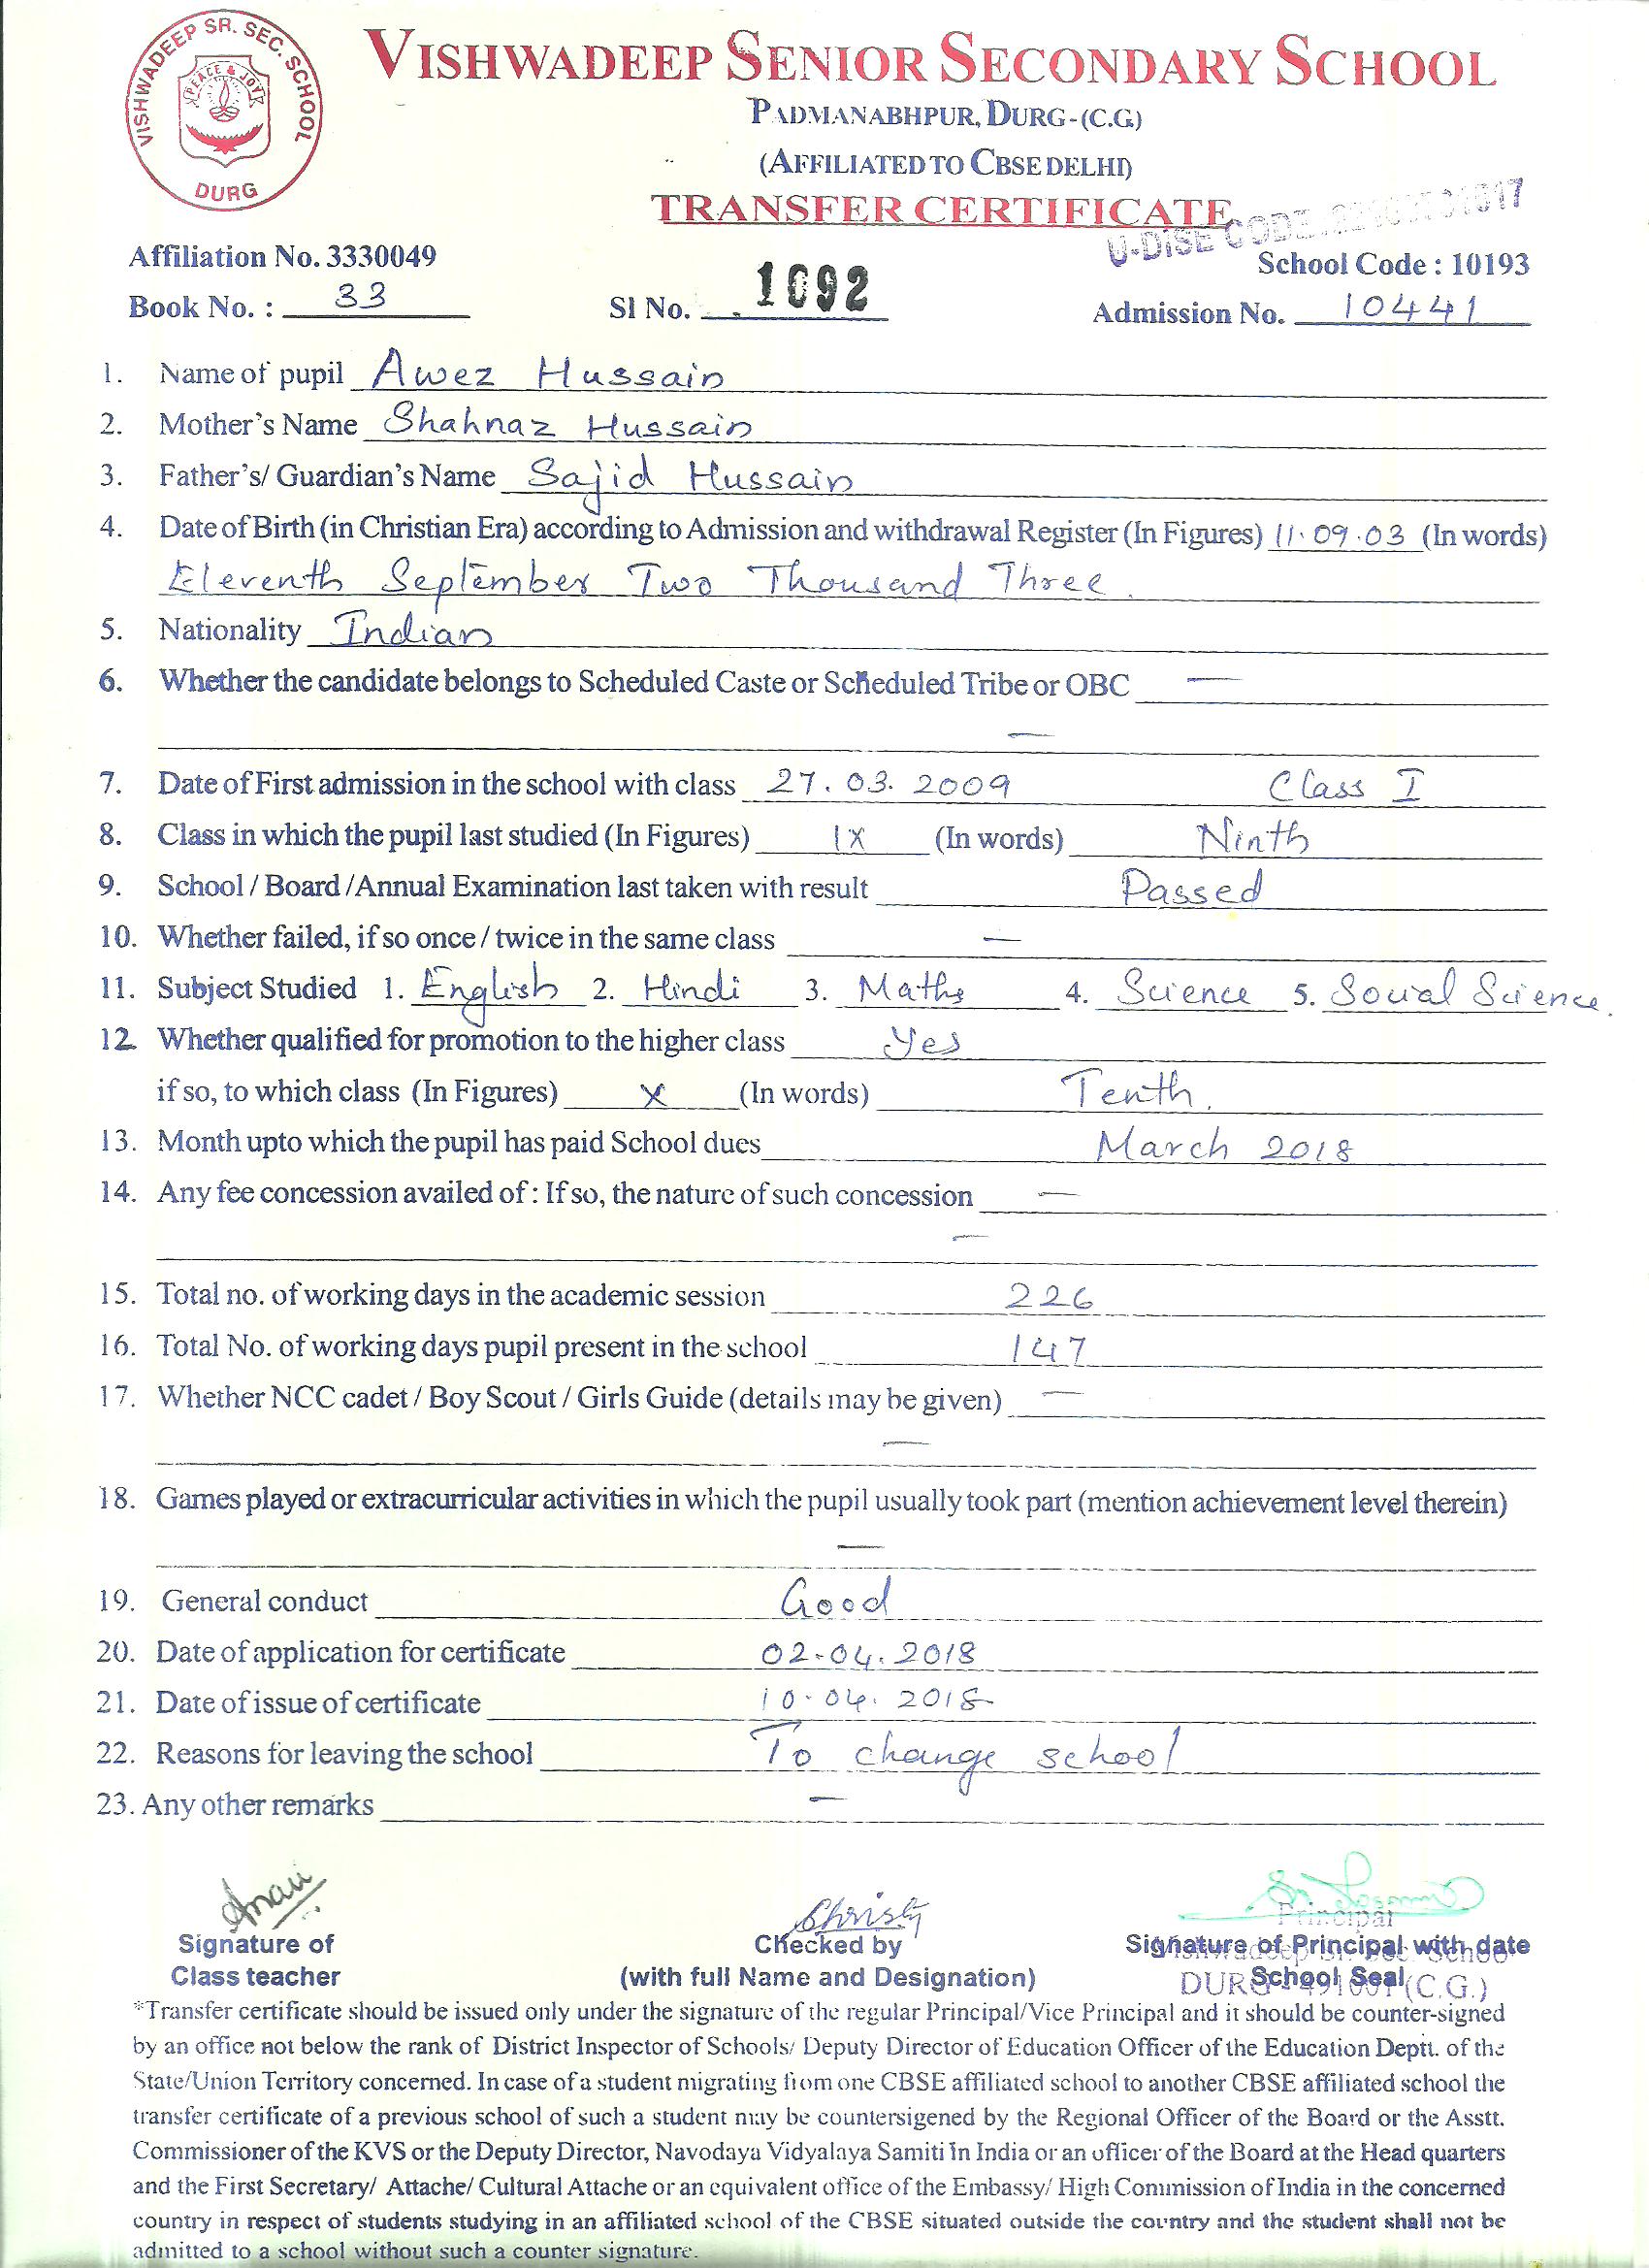 VISHWADEEP SR. SEC. SCHOOL
PEACE & JOY
DURG
VISHWADEEP SENIOR SECONDARY SCHOOL
PADMANABHPUR, DURG-(C.G.)
(AFFILIATED TO CBSE DELHI)
TRANSFER CERTIFICATE
U-DISE CODE
Affiliation No. 3330049 School Code : 10193
Book No. : 33 Sl No. 1692 Admission No. 10441
1. Name of pupil Awez Hussain
2. Mother's Name Shahnaz Hussain
3. Father's/ Guardian's Name Sajid Hussain
4. Date of Birth (in Christian Era) according to Admission and withdrawal Register (In Figures) 11.09.03 (In words)
Eleventh September Two Thousand Three.
5. Nationality Indian
6. Whether the candidate belongs to Scheduled Caste or Scheduled Tribe or OBC —
—
7. Date of First admission in the school with class 27.03.2009 Class I
8. Class in which the pupil last studied (In Figures) IX (In words) Ninth
9. School / Board /Annual Examination last taken with result Passed
10. Whether failed, if so once / twice in the same class —
11. Subject Studied 1. English 2. Hindi 3. Maths 4. Science 5. Social Science.
12. Whether qualified for promotion to the higher class Yes
if so, to which class (In Figures) X (In words) Tenth.
13. Month upto which the pupil has paid School dues March 2018
14. Any fee concession availed of : If so, the nature of such concession —
—
15. Total no. of working days in the academic session 226
16. Total No. of working days pupil present in the school 147
17. Whether NCC cadet / Boy Scout / Girls Guide (details may be given) —
—
18. Games played or extracurricular activities in which the pupil usually took part (mention achievement level therein)
—
19. General conduct Good
20. Date of application for certificate 02-04.2018
21. Date of issue of certificate 10-04.2018
22. Reasons for leaving the school To change school
23. Any other remarks —
Christy
Principal
Signature of Checked by Signature of Principal with date
Class teacher (with full Name and Designation) School Seal
DURG - 491001 (C.G.)
*Transfer certificate should be issued only under the signature of the regular Principal/Vice Principal and it should be counter-signed
by an office not below the rank of District Inspector of Schools/ Deputy Director of Education Officer of the Education Deptt. of the
State/Union Territory concerned. In case of a student migrating from one CBSE affiliated school to another CBSE affiliated school the
transfer certificate of a previous school of such a student may be countersigened by the Regional Officer of the Board or the Asstt.
Commissioner of the KVS or the Deputy Director, Navodaya Vidyalaya Samiti in India or an officer of the Board at the Head quarters
and the First Secretary/ Attache/ Cultural Attache or an equivalent office of the Embassy/ High Commission of India in the concerned
country in respect of students studying in an affiliated school of the CBSE situated outside the country and the student shall not be
admitted to a school without such a counter signature.